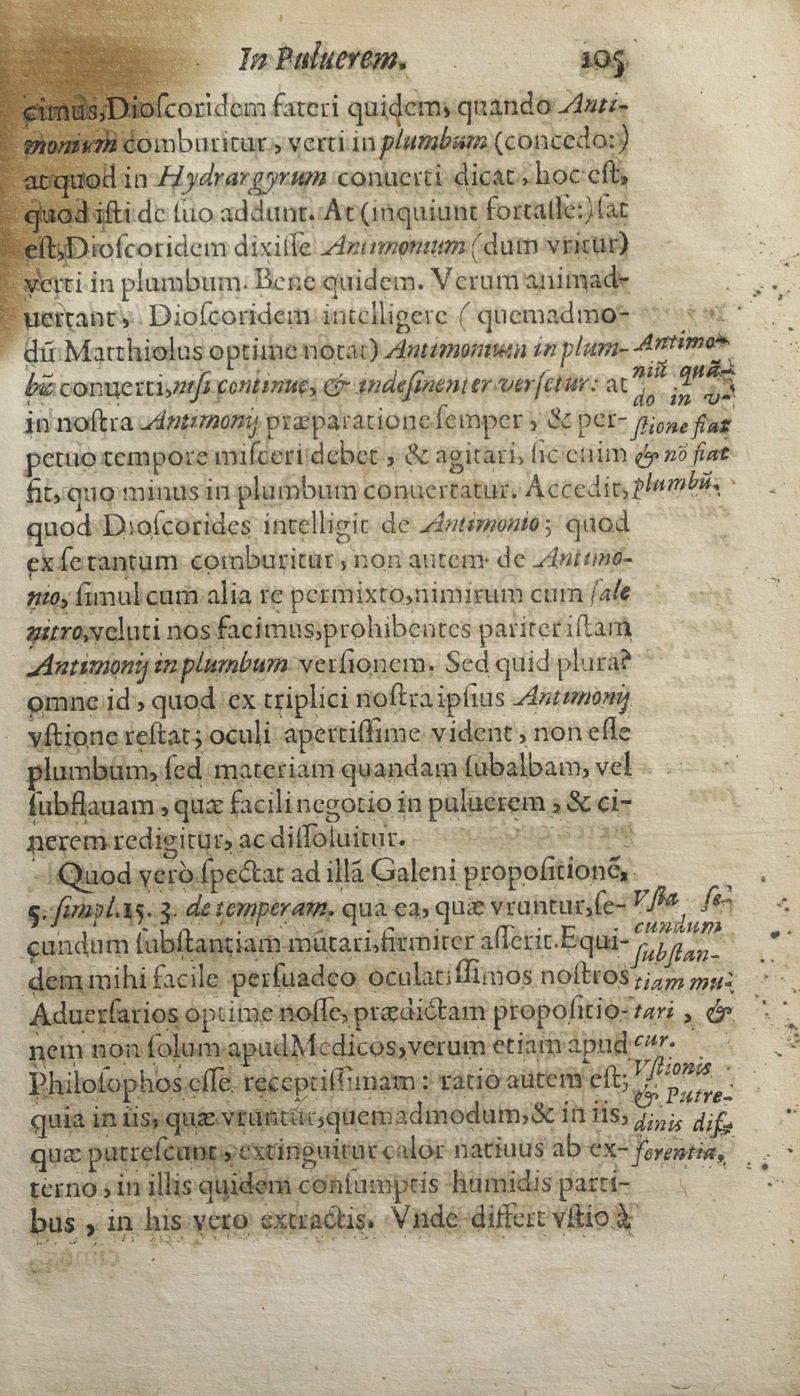 In Puluerem.
105
cimus, Dioſcoridem fateri quidem, quando Anti-
monium comburitur, verti in plumbum (concedo:)
at quod in Hydrargyrum conuerti dicat, hoc eſt,
quod iſti de ſuo addunt. At (inquiunt fortaſſe:) ſat
eſt, Dioſcoridem dixiſſe Antimonium (dum vritur)
verti in plumbum. Bene quidem. Verum animad-
uertant, Dioſcoridem intelligere (quemadmo-
dũ Matthiolus optime notat) Antimonium in plum-
bũ conuerti, niſi continue, & indeſinenter verſetur: at
in noſtra Antimonij præparatione ſemper, & per-
petuo tempore miſceri debet, & agitari, ſic enim
fit, quo minus in plumbum conuertatur. Accedit,
quod Dioſcorides intelligit de Antimonio; quod
ex ſe tantum comburitur, non autem de Antimo-
nio, ſimul cum alia re permixto, nimirum cum ſale
nitro, veluti nos facimus, prohibentes pariter iſtam
Antimonij in plumbum verſionem. Sed quid plura?
omne id, quod ex triplici noſtra ipſius Antimonij
vſtione reſtat; oculi apertiſſime vident, non eſſe
plumbum, ſed materiam quandam ſubalbam, vel
ſubflauam, quæ facili negotio in puluerem, & ci-
nerem redigitur, ac diſſoluitur.
Quod verò ſpectat ad illã Galeni propoſitionẽ,
5. ſimpl. 15. 3. de temperam. qua ea, quæ vruntur, ſe-
cundum ſubſtantiam mutari, firmiter aſſerit. Equi-
dem mihi facile perſuadeo oculatiſſimos noſtros
Aduerſarios optime noſſe, prædictam propoſitio-
nem non ſolum apud Medicos, verum etiam apud
Philoſophos eſſe receptiſſimam: ratio autem eſt;
quia in iis, quæ vruntur, quemadmodum, & in iis,
quæ putreſcunt, extinguitur calor natiuus ab ex-
terno, in illis quidem conſumptis humidis parti-
bus, in his vero extractis. Vnde differt vſtio à
Antimo-
niũ quã-
do in v-
ſtione fiat
& nõ fiat
plumbũ.
Vſta ſe-
cundum
ſubſtan-
tiam mu-
tari, &
cur.
Vſtionis
& Putre-
dinis dif-
ferentia,